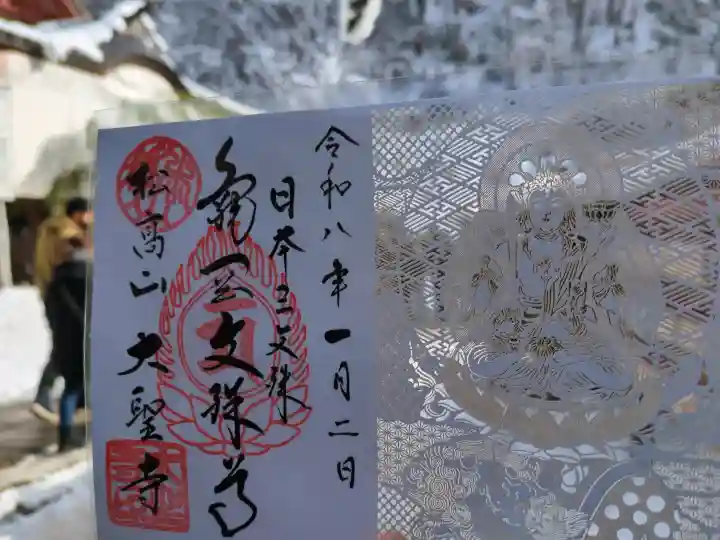 令和八年一月二日
日本三文珠
亀岡文珠尊
松高山 大聖寺